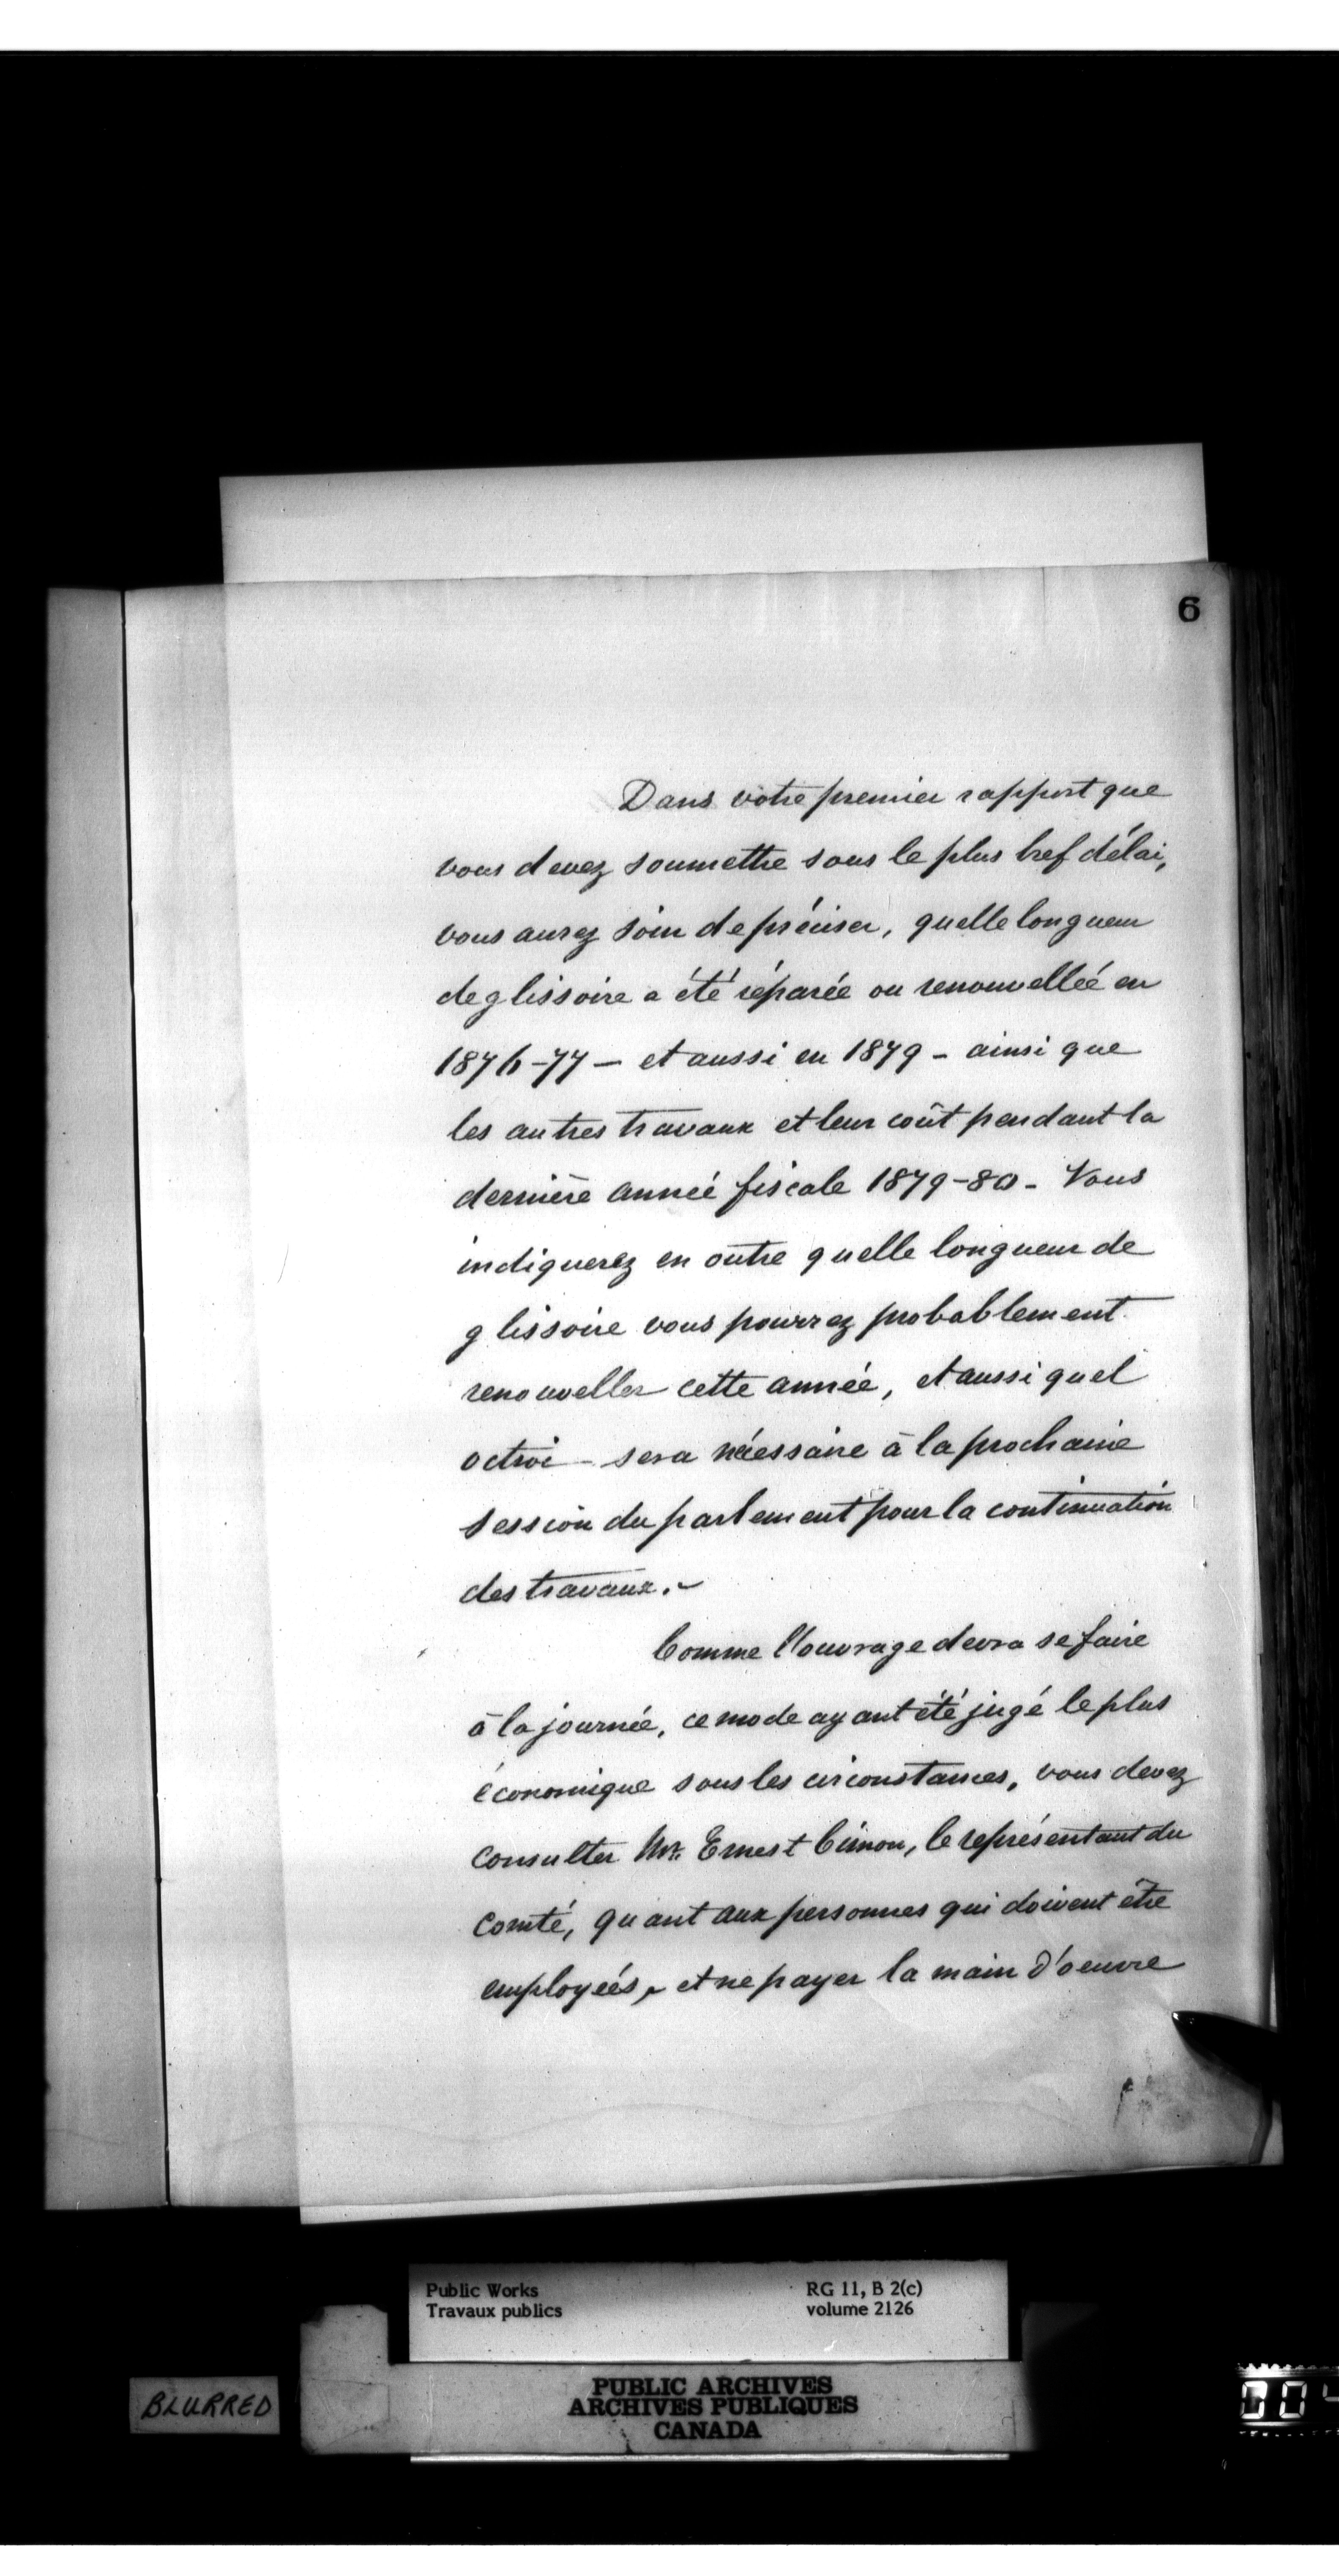 6
Dans votre premier rapport que
vous devez soumettre sous le plus bref délai,
vous aurez soin de préciser, quelle longueur
de glissoire a été réparée ou renouvellée en
1876-77 — et aussi en 1879 - ainsi que
les autres travaux et leur coût pendant la
dernière année fiscale 1879-80 - Vous
indiquerez en outre quelle longueur de
glissoire vous pourrez probablement
renouveller cette année, et aussi quel
octroi - sera nécessaire à la prochaine
session du parlement pour la continuation
des travaux. ~
Comme l'ouvrage devra se faire
à la journée, ce mode ayant été jugé le plus
économique sous les circonstances, vous devez
consulter Mr. Ernest Cimon, le représentant du
comté, quant aux personnes qui doivent être
employées, et ne payer la main d'oeuvre
Public Works
Travaux publics
RG 11, B 2(c)
volume 2126
PUBLIC ARCHIVES
ARCHIVES PUBLIQUES
CANADA
BLURRED
004